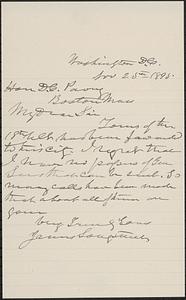 Washington D.C.
Nov 25th 1895.
Hon D.C.
Boston Mass
My Dear Sir
Yours of the
18th Ult. has been forward
to this city. I regret that
I have no papers of Gen
Lee that can be sent. So
many calls have been made
that about all of them are
gone
Very Truly Yours
James Longstreet